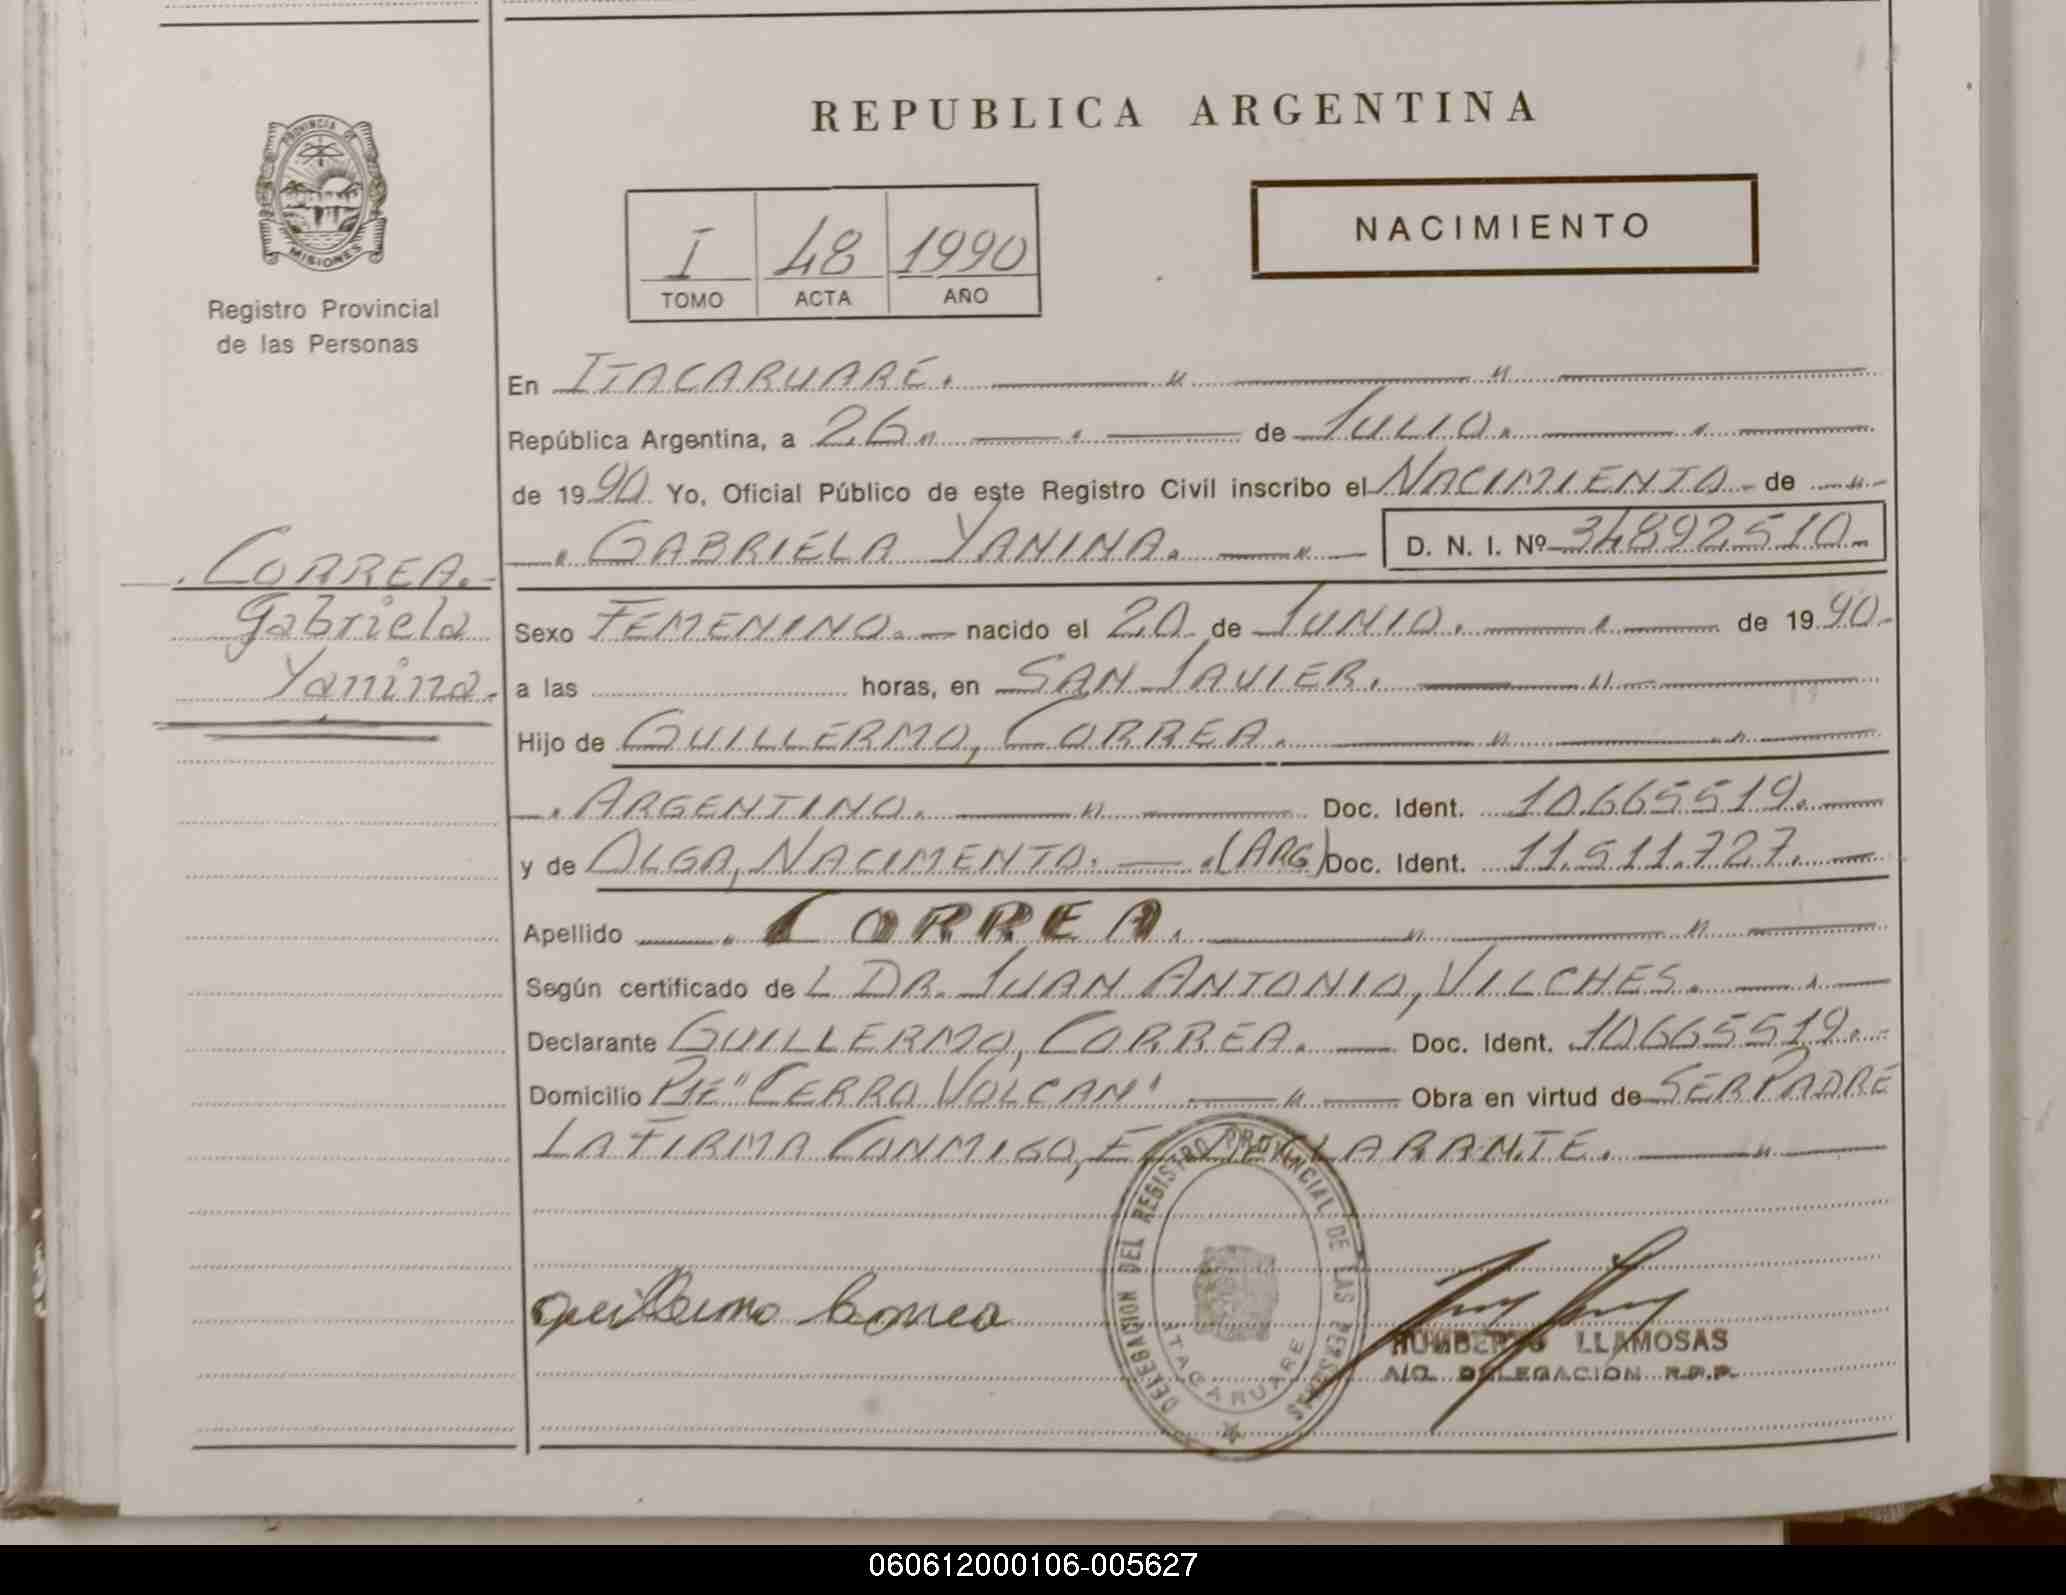 REPUBLICA ARGENTINA
PROVINCIA DE
MISIONES
Registro Provincial
de las Personas
I 48 1990
TOMO ACTA AÑO
NACIMIENTO
En ITACARUARÉ.
República Argentina, a 26 de JULIO.
de 1990 Yo, Oficial Público de este Registro Civil inscribo el NACIMIENTO de
GABRIELA YANINA. D. N. I. Nº 34892510
CORREA.
Gabriela
Yanina.
Sexo FEMENINO. nacido el 20 de JUNIO. de 1990
a las horas, en SAN JAVIER.
Hijo de GUILLERMO, CORREA.
ARGENTINO. Doc. Ident. 10665519.
y de OLGA, NACIMENTO. (ARG) Doc. Ident. 11.511.727.
Apellido CORREA.
Según certificado de L DR. JUAN ANTONIO, VILCHES.
Declarante GUILLERMO, CORREA. Doc. Ident. 10665519.
Domicilio PJE "CERRO VOLCAN" Obra en virtud de SER PADRE
LA FIRMA CONMIGO, EL DECLARANTE.
Guillermo Correa
DELEGACION DEL REGISTRO PROVINCIAL DE LAS PERSONAS
ITACARUARE
HUMBERTO LLAMOSAS
A/C. DELEGACION R.P.P.
060612000106-005627